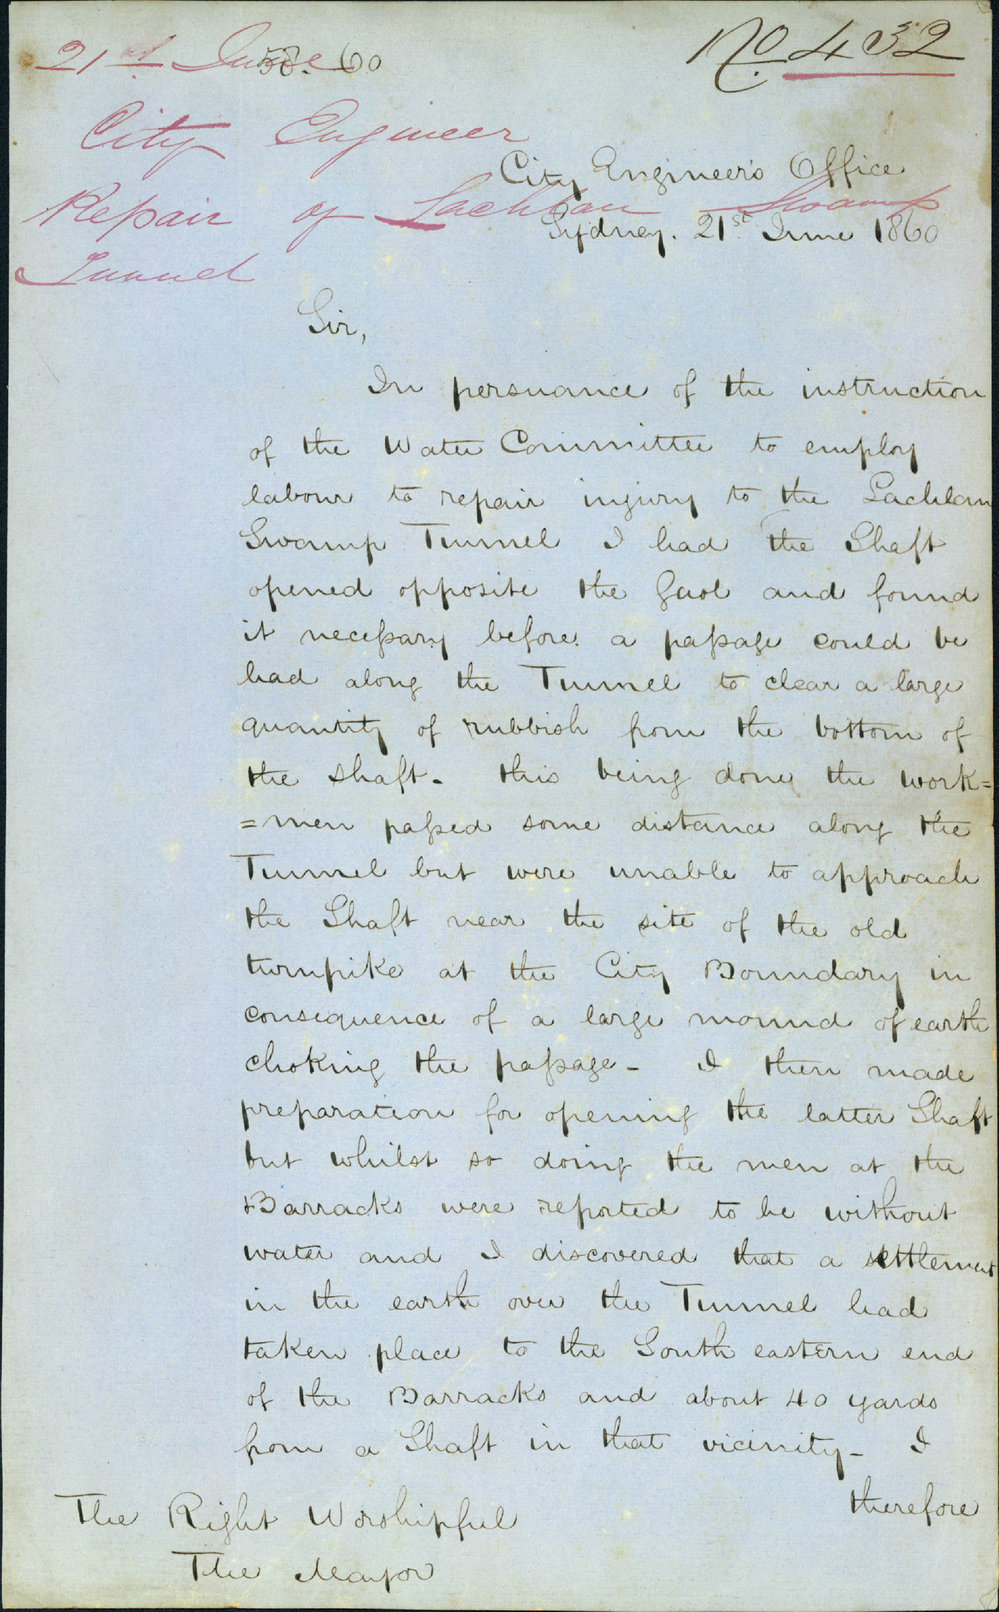 21st June 60
No 432
City Engineer
Repair of Lachlan Swamp
Tunnel
City Engineer's Office
Sydney. 21st June 1860
Sir,
In persuance of the instruction
of the Water Committee to employ
labour to repair injury to the Lachlan
Swamp Tunnel I had the Shaft
opened opposite the Gaol and found
it necessary before a passage could be
had along the Tunnel to clear a large
quantity of rubbish from the bottom of
the shaft - this being done the work=
=men passed some distance along the
Tunnel but were unable to approach
the Shaft near the site of the old
turnpike at the City Boundary in
consequence of a large mound of earth
choking the passage - I then made
preparation for opening the latter Shaft
but whilst so doing the men at the
Barracks were reported to be without
water and I discovered that a settlement
in the earth over the Tunnel had
taken place to the South eastern end
of the Barracks and about 40 yards
from a Shaft in that vicinity - I
therefore
The Right Worshipful
The Mayor